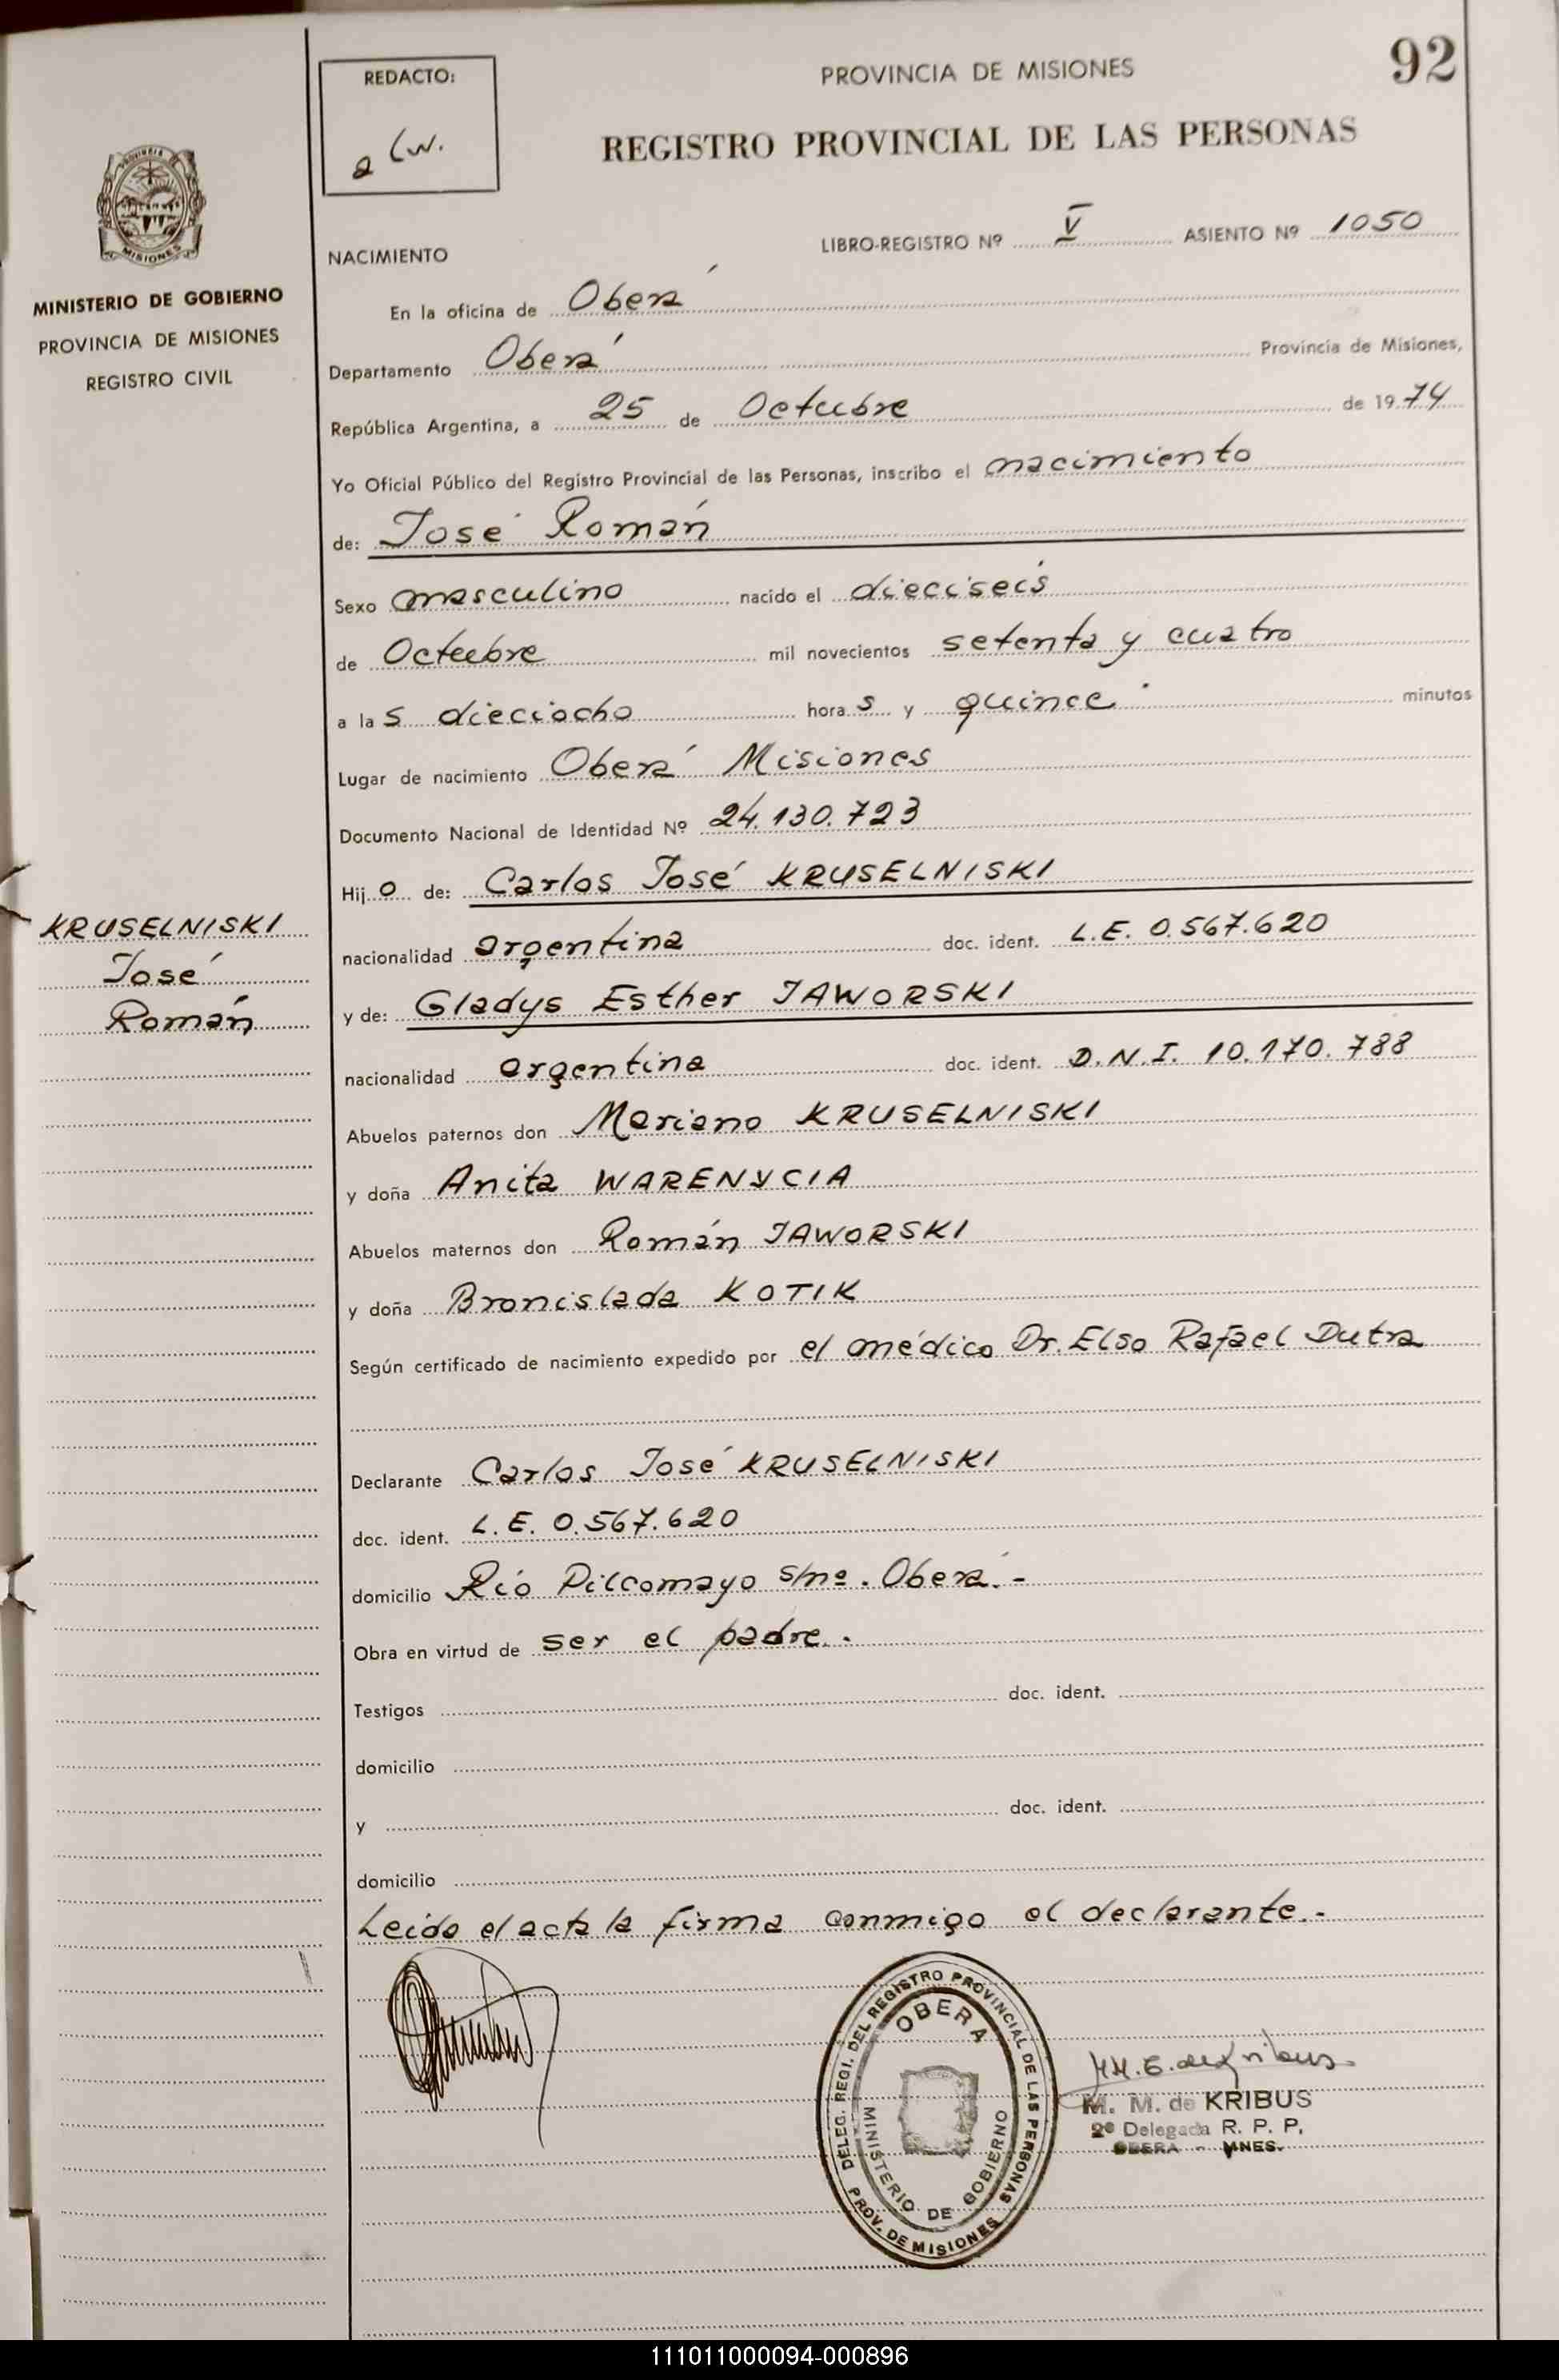 92
PROVINCIA DE MISIONES
REGISTRO PROVINCIAL DE LAS PERSONAS
REDACTO:
MISIONES
MINISTERIO DE GOBIERNO
PROVINCIA DE MISIONES
REGISTRO CIVIL
KRUSELNISKI
José
Román
LIBRO-REGISTRO Nº V ASIENTO Nº 1050
NACIMIENTO
En la oficina de Oberá
Departamento Oberá Provincia de Misiones,
República Argentina, a 25 de Octubre de 1974
Yo Oficial Público del Registro Provincial de las Personas, inscribo el nacimiento
de: José Román
Sexo masculino nacido el dieciseis
de Octubre mil novecientos setenta y cuatro
a las dieciocho horas y quince minutos
Lugar de nacimiento Oberá Misiones
Documento Nacional de Identidad Nº 24.130.723
Hijo de: Carlos José KRUSELNISKI
nacionalidad argentina doc. ident. L.E. 0.567.620
y de: Gladys Esther JAWORSKI
nacionalidad argentina doc. ident. D.N.I. 10.170.788
Abuelos paternos don Mariano KRUSELNISKI
y doña Anita WARENYCIA
Abuelos maternos don Román JAWORSKI
y doña Bronislada KOTIK
Según certificado de nacimiento expedido por el médico Dr. Elso Rafael Dutra
Declarante Carlos José KRUSELNISKI
doc. ident. L.E. 0.567.620
domicilio Río Pilcomayo s/nº. Oberá.-
Obra en virtud de ser el padre.
Testigos doc. ident.
domicilio
y doc. ident.
domicilio
Leida el acta la firma conmigo el declarante.-
DELEG. REGI. DEL REGISTRO PROVINCIAL DE LAS PERSONAS
OBERA
MINISTERIO DE GOBIERNO
PROV. DE MISIONES
M. M. de KRIBUS
2º Delegada R. P. P.
OBERA - MNES.
111011000094-000896